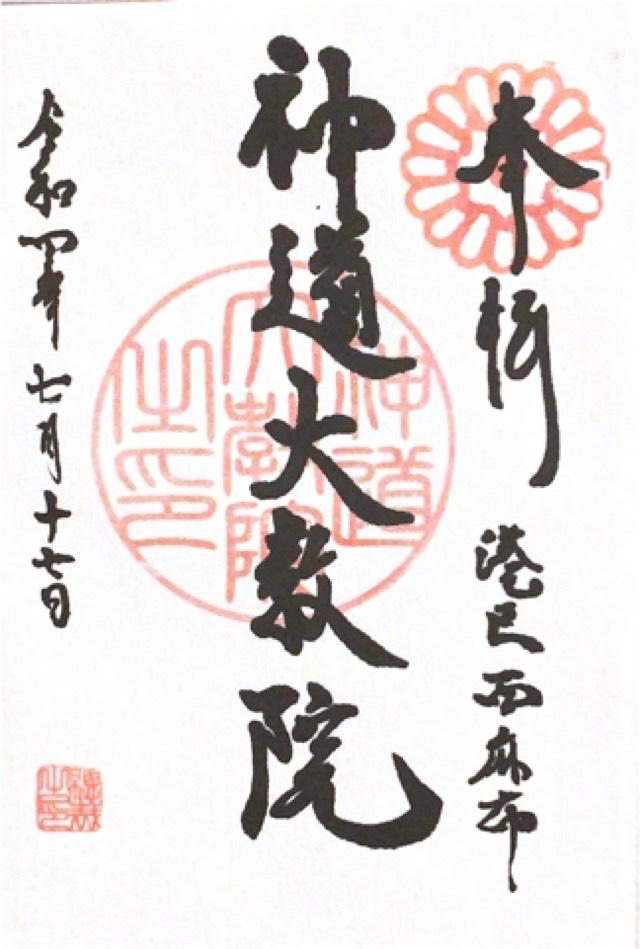 奉拝
港区西麻布
神道大教院
神道大教院之印
令和四年七月十七日